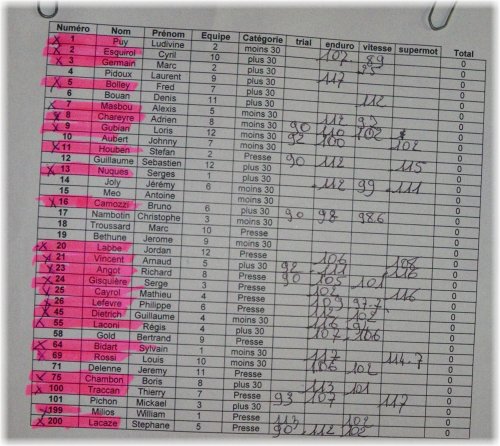 Numéro Nom Prénom Equipe Catégorie trial enduro vitesse supermot Total
x 1 Puy Ludivine 2 moins 30 0
x 2 Esquirol Cyril 10 plus 30 107 89 0
x 3 Germain Marc 2 plus 30 0
4 Pidoux Laurent 9 moins 30 117 0
x 5 Bolley Fred 7 plus 30 0
6 Bouan Denis 11 plus 30 112 0
x 7 Masbou Alexis 5 moins 30 0
x 8 Chareyre Adrien 8 moins 30 112 93 0
x 9 Gubian Loris 12 moins 30 90 110 102 0
10 Aubert Johnny 7 moins 30 92 100 102 0
x 11 Houben Stefan 2 Presse 0
12 Guillaume Sebastien 12 plus 30 90 112 115 0
x 13 Nuques Serges 1 plus 30 0
14 Joly Jérémy 6 moins 30 112 99 111 0
15 Meo Antoine moins 30 0
x 16 Camozzi Bruno 6 plus 30 0
17 Nambotin Christophe 3 moins 30 90 98 98.6 0
18 Troussard Marc 10 Presse 0
19 Bethune Jerome 9 moins 30 0
x 20 Labbe Jordan 12 Presse 106 108 0
x 21 Vincent Arnaud 5 plus 30 92 111 110 0
x 23 Angot Richard 8 Presse 90 105 101 0
x 24 Gisquière Serge 3 Presse 0
x 25 Cayrol Mathieu 4 moins 30 102 116 0
x 26 Lefevre Philippe 6 Presse 109 97.7 0
x 45 Dietrich Guillaume 4 moins 30 112 102 0
x 55 Laconi Régis 4 plus 30 116 0
58 Gold Bertrand 9 Presse 107 106 0
x 64 Bidart Sylvain 1 moins 30 0
x 69 Rossi Louis 10 moins 30 117 114.7 0
71 Delenne Jeremy 11 Presse 106 102 0
x 75 Chambon Boris 8 plus 30 0
x 100 Traccan Thierry 7 Presse 113 101 0
101 Pichon Mickael 3 plus 30 93 107 117 0
x 199 Millos William 1 Presse 0
x 200 Lacaze Stephane 5 Presse 90 112 102 0